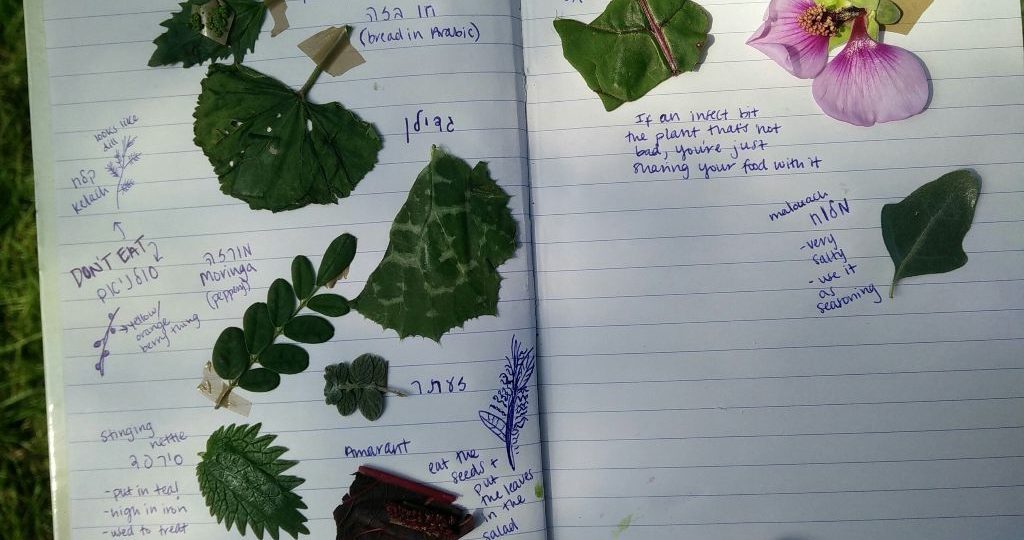 חובזה
(bread in Arabic)
גדילן
looks like
dill
kelach
DON'T EAT
moringa
(peppery)
yellow/
orange
berry thing
זעתר
Stinging
nettle
סירפד
-put in tea!
-high in iron
-used to treat
Amarant
eat the
seeds +
put
the leaves
in the
salad
If an insect bit
the plant that's not
bad, you're just
sharing your food with it
malouach
מלוח
-very
salty
-use it
as
seasoning